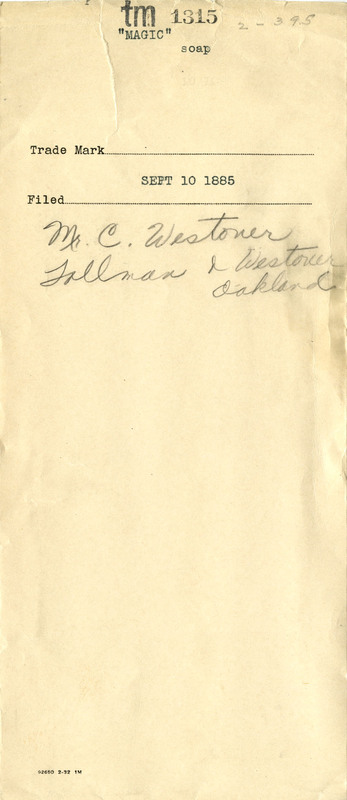 tm 1315 2-395
"MAGIC"
soap
Trade Mark
SEPT 10 1885
Filed
M. C. Westover
Tollman & Westover
Oakland
92650 2-32 1M